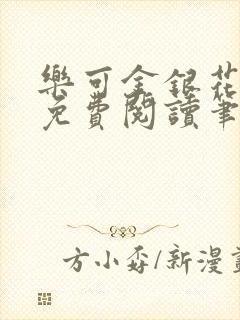 樂可金銀花
免費閱讀筆
方小孬/新漫畫